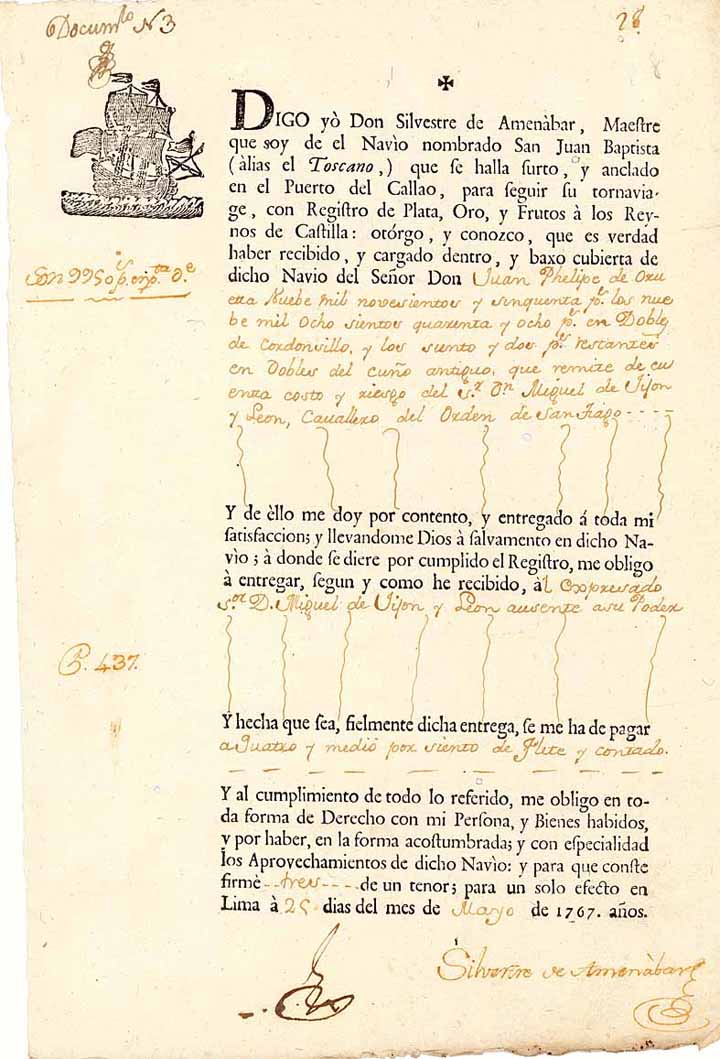 Documto N 3
28
✠
DIGO yò Don Silvestre de Amenàbar, Maestre
que soy de el Navìo nombrado San Juan Baptista
(àlias el Toscano,) que se halla surto, y anclado
en el Puerto del Callao, para seguir su tornavia-
ge, con Registro de Plata, Oro, y Frutos à los Rey-
nos de Castilla: otórgo, y conozco, que es verdad
haber recibido, y cargado dentro, y baxo cubierta de
dicho Navio del Señor Don Juan Phelipe de Oxu
Son 9950 ps. en pta. de.
etta Nuebe mil novesientos y sinquenta ps. los nue
be mil Ocho sientos quarenta y ocho ps. en Dobles
de Cordonsillo, y los siento y dos ps. restantes
en Dobles del cuño antiguo, que remite de cu
enta costo y riesgo del sr. Dn. Miguel de Jijon
y Leon, Cavallero del Orden de Santiago - - - -
Y de èllo me doy por contento, y entregado á toda mi
satisfaccion; y llevandome Dios à salvamento en dicho Na-
vìo; à donde se diere por cumplido el Registro, me obligo
à entregar, segun y como he recibido, àl Expresado
sor. D. Miguel de Jijon y Leon ausente a su Poder
P. 437.
Y hecha que sea, fielmente dicha entrega, se me ha de pagar
a Quatro y medio por siento de Flete y contado.
Y al cumplimiento de todo lo referido, me obligo en to-
da forma de Derecho con mi Persona, y Bienes habidos,
y por haber, en la forma acostumbrada; y con especialidad
los Aprovechamientos de dicho Navìo: y para que conste
firmè - - tres - - - - de un tenor; para un solo efecto en
Lima à 25 dias del mes de Mayo de 1767. años.
Silvestre de Amenàbar